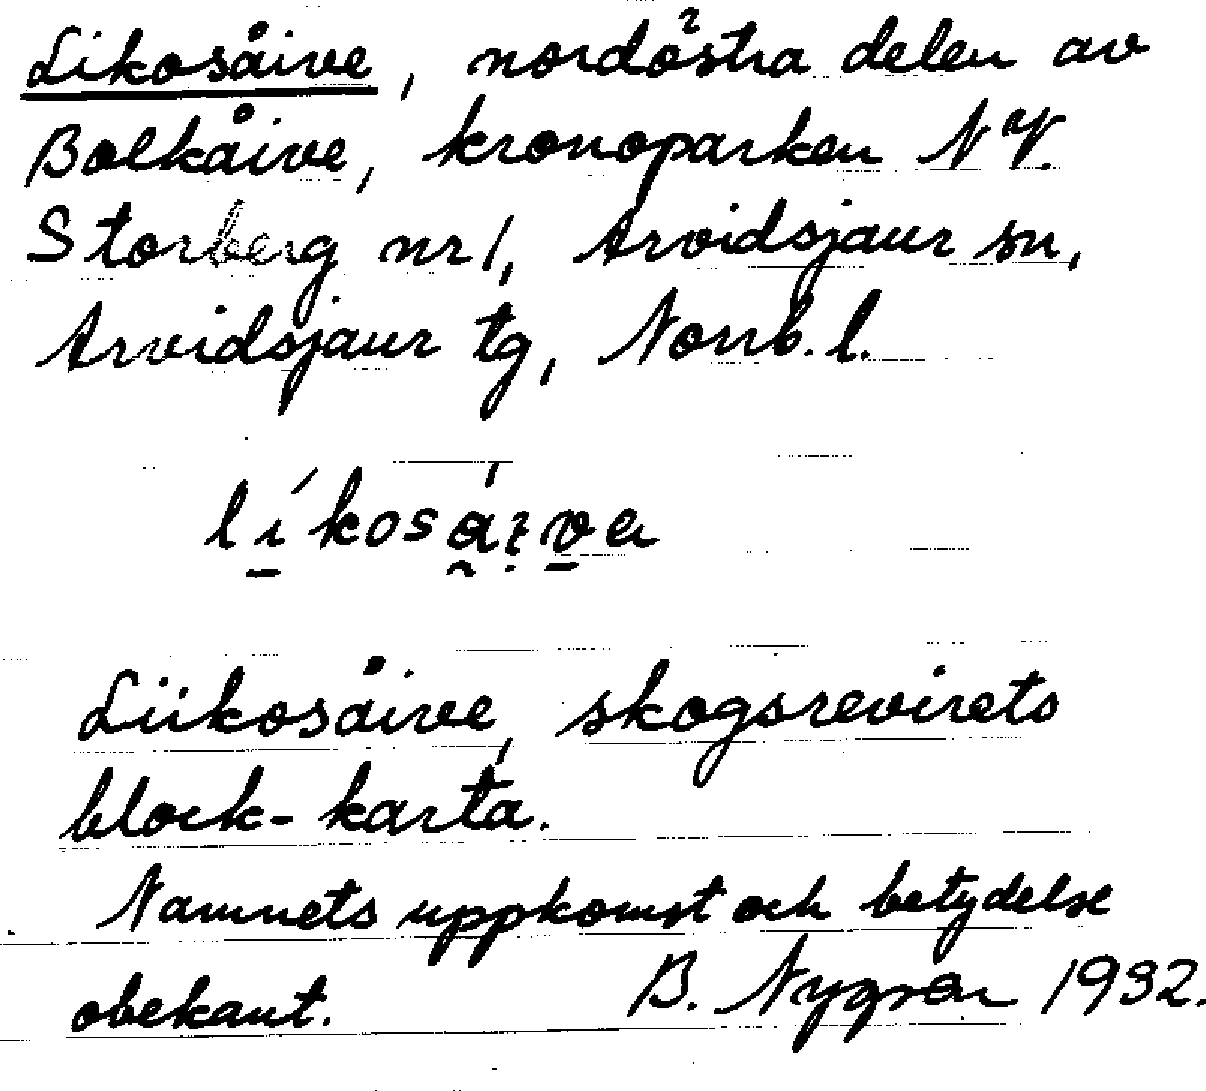 Likosåive, nordöstra delen av
Bolkåive, kronoparken NV.
Storberg nr 1, Arvidsjaur sn,
Arvidsjaur tg, Norrb. l.
Liikosåive, skogsrevirets
block-karta.
Namnets uppkomst och betydelse
obekant. B. Nygren 1932.